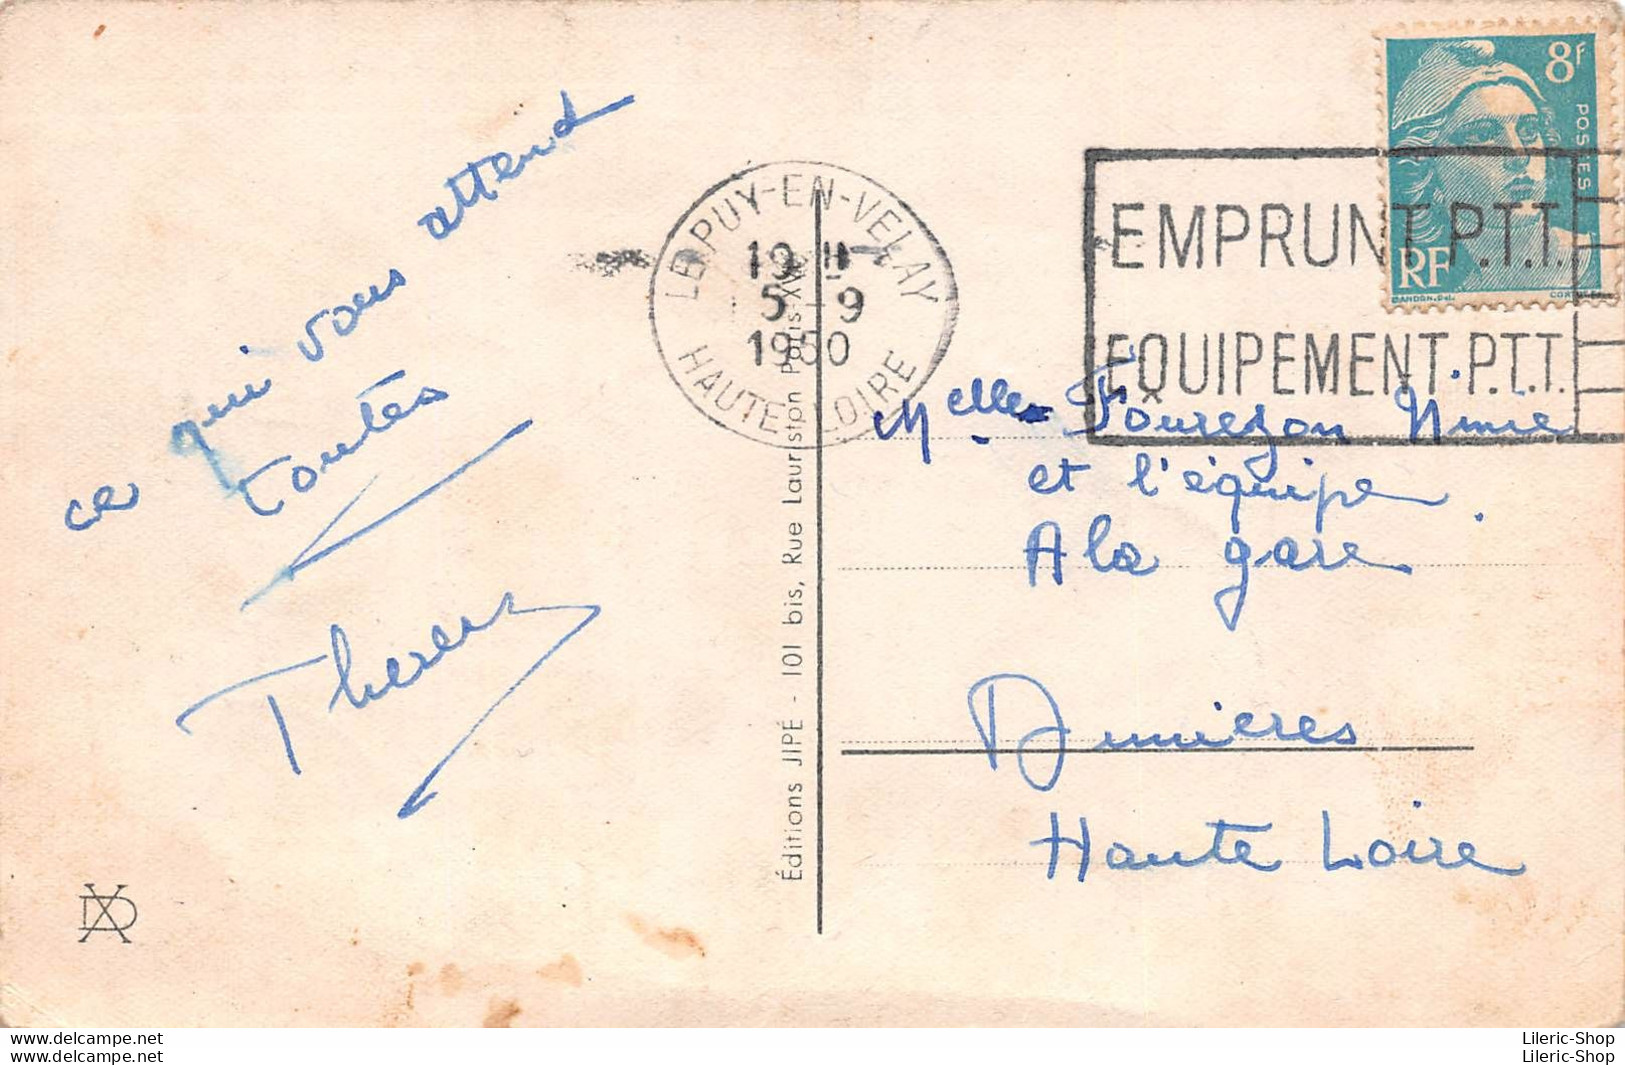 ce qui vous attend
toutes
Therese
Éditions JIPÉ - 101 bis, Rue Lauriston Paris-XV
LE PUY-EN-VELAY
19 H
5 - 9
1950
HAUTE-LOIRE
8F
POSTES
RF
EMPRUNT P.T.T.
EQUIPEMENT P.T.T.
Melles Fourezon Mimie
et l'équipe
A la gare
Dunieres
Haute Loire
www.delcampe.net
www.delcampe.net
Lileric-Shop
Lileric-Shop